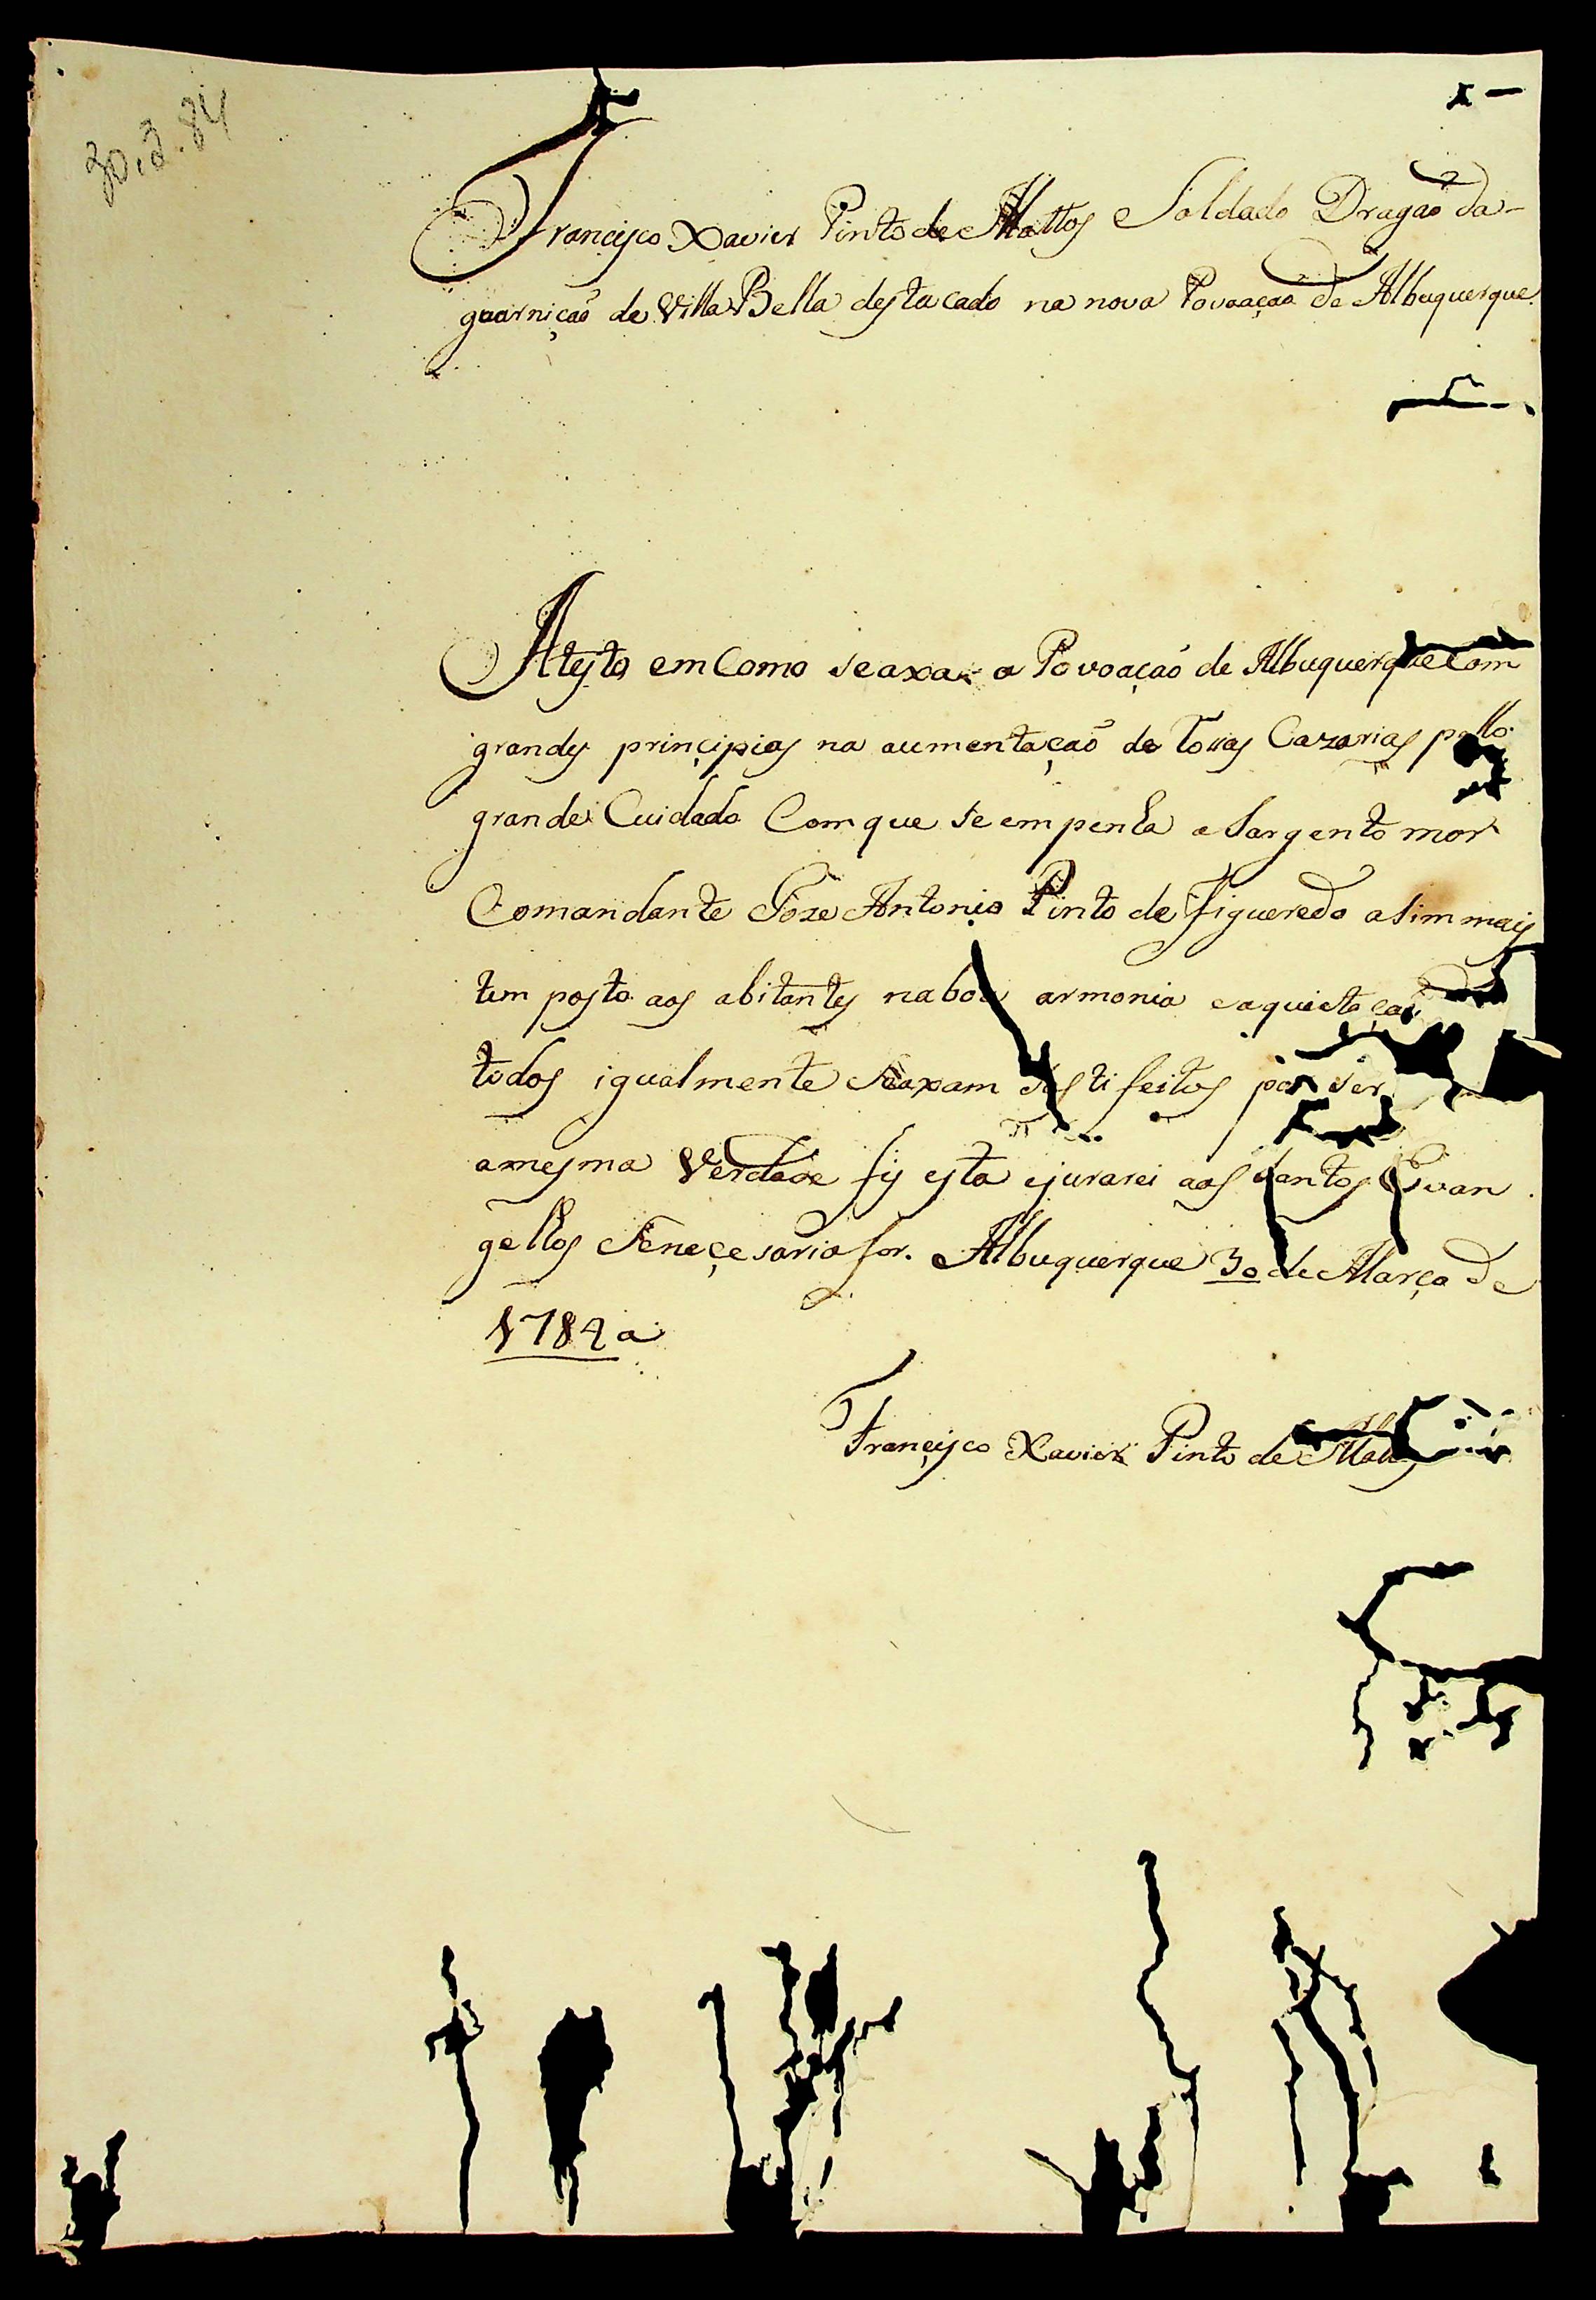 30.3.84
Francisco Xavier Pinto de Mattos Soldado Dragaõ da-
guarniçaõ de Villa Bella destacado na nova Povoaçaõ de Albuquerque.
Atesto em Como se axa a Povoaçaõ de Albuquerque Com
grandes prinçipios na aumentaçaõ de Cazarias pello
grande Cuidado Com que se empenha o Sargento mor
Comandante Joze Antonio Pinto de Figueredo asim mais
tem posto aos abitantes na boa armonia e aquietaçaõ
todos igualmente se axam por ser
a mesma Verdade fis esta e jurarei aos Santos Evan
gelhos se neçesario for. Albuquerque 30 de Março de
1784 a
Françisco Xavier Pinto de Mattos